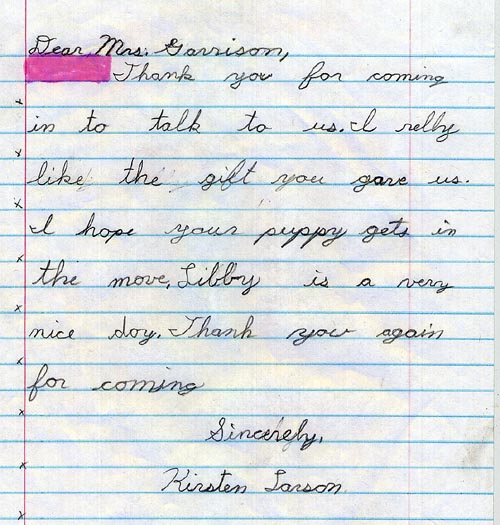 Dear Mrs. Garrison,
Thank you for coming
in to talk to us. I relly
like the gift you gave us.
I hope your puppy gets in
the move, Libby is a very
nice doy. Thank you again
for coming
Sincerely,
Kirsten Larson